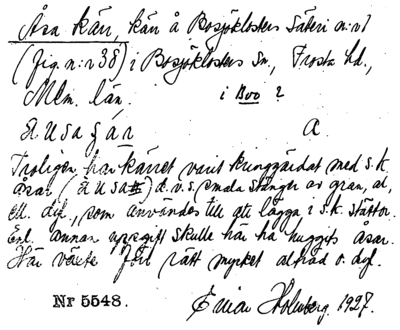 Åsa kärr, kärr å Bosjöklosters Säteri n:r 1
(fig. n:r 38) i Bosjöklosters Sn., Frosta hd.,
Mlm. län. i Boo ?
A.
Troligen har kärret varit kringgärdat med s.k.
åsar d.v.s. smala stänger av gran, al,
ell. dyl., som användes till att lägga i s.k. stättor.
Enl. annan uppgift skulle här ha huggits åsar.
Här växte förr rätt mycket alträd o. dyl.
Nr 5548. Einar Holmberg. 1927.